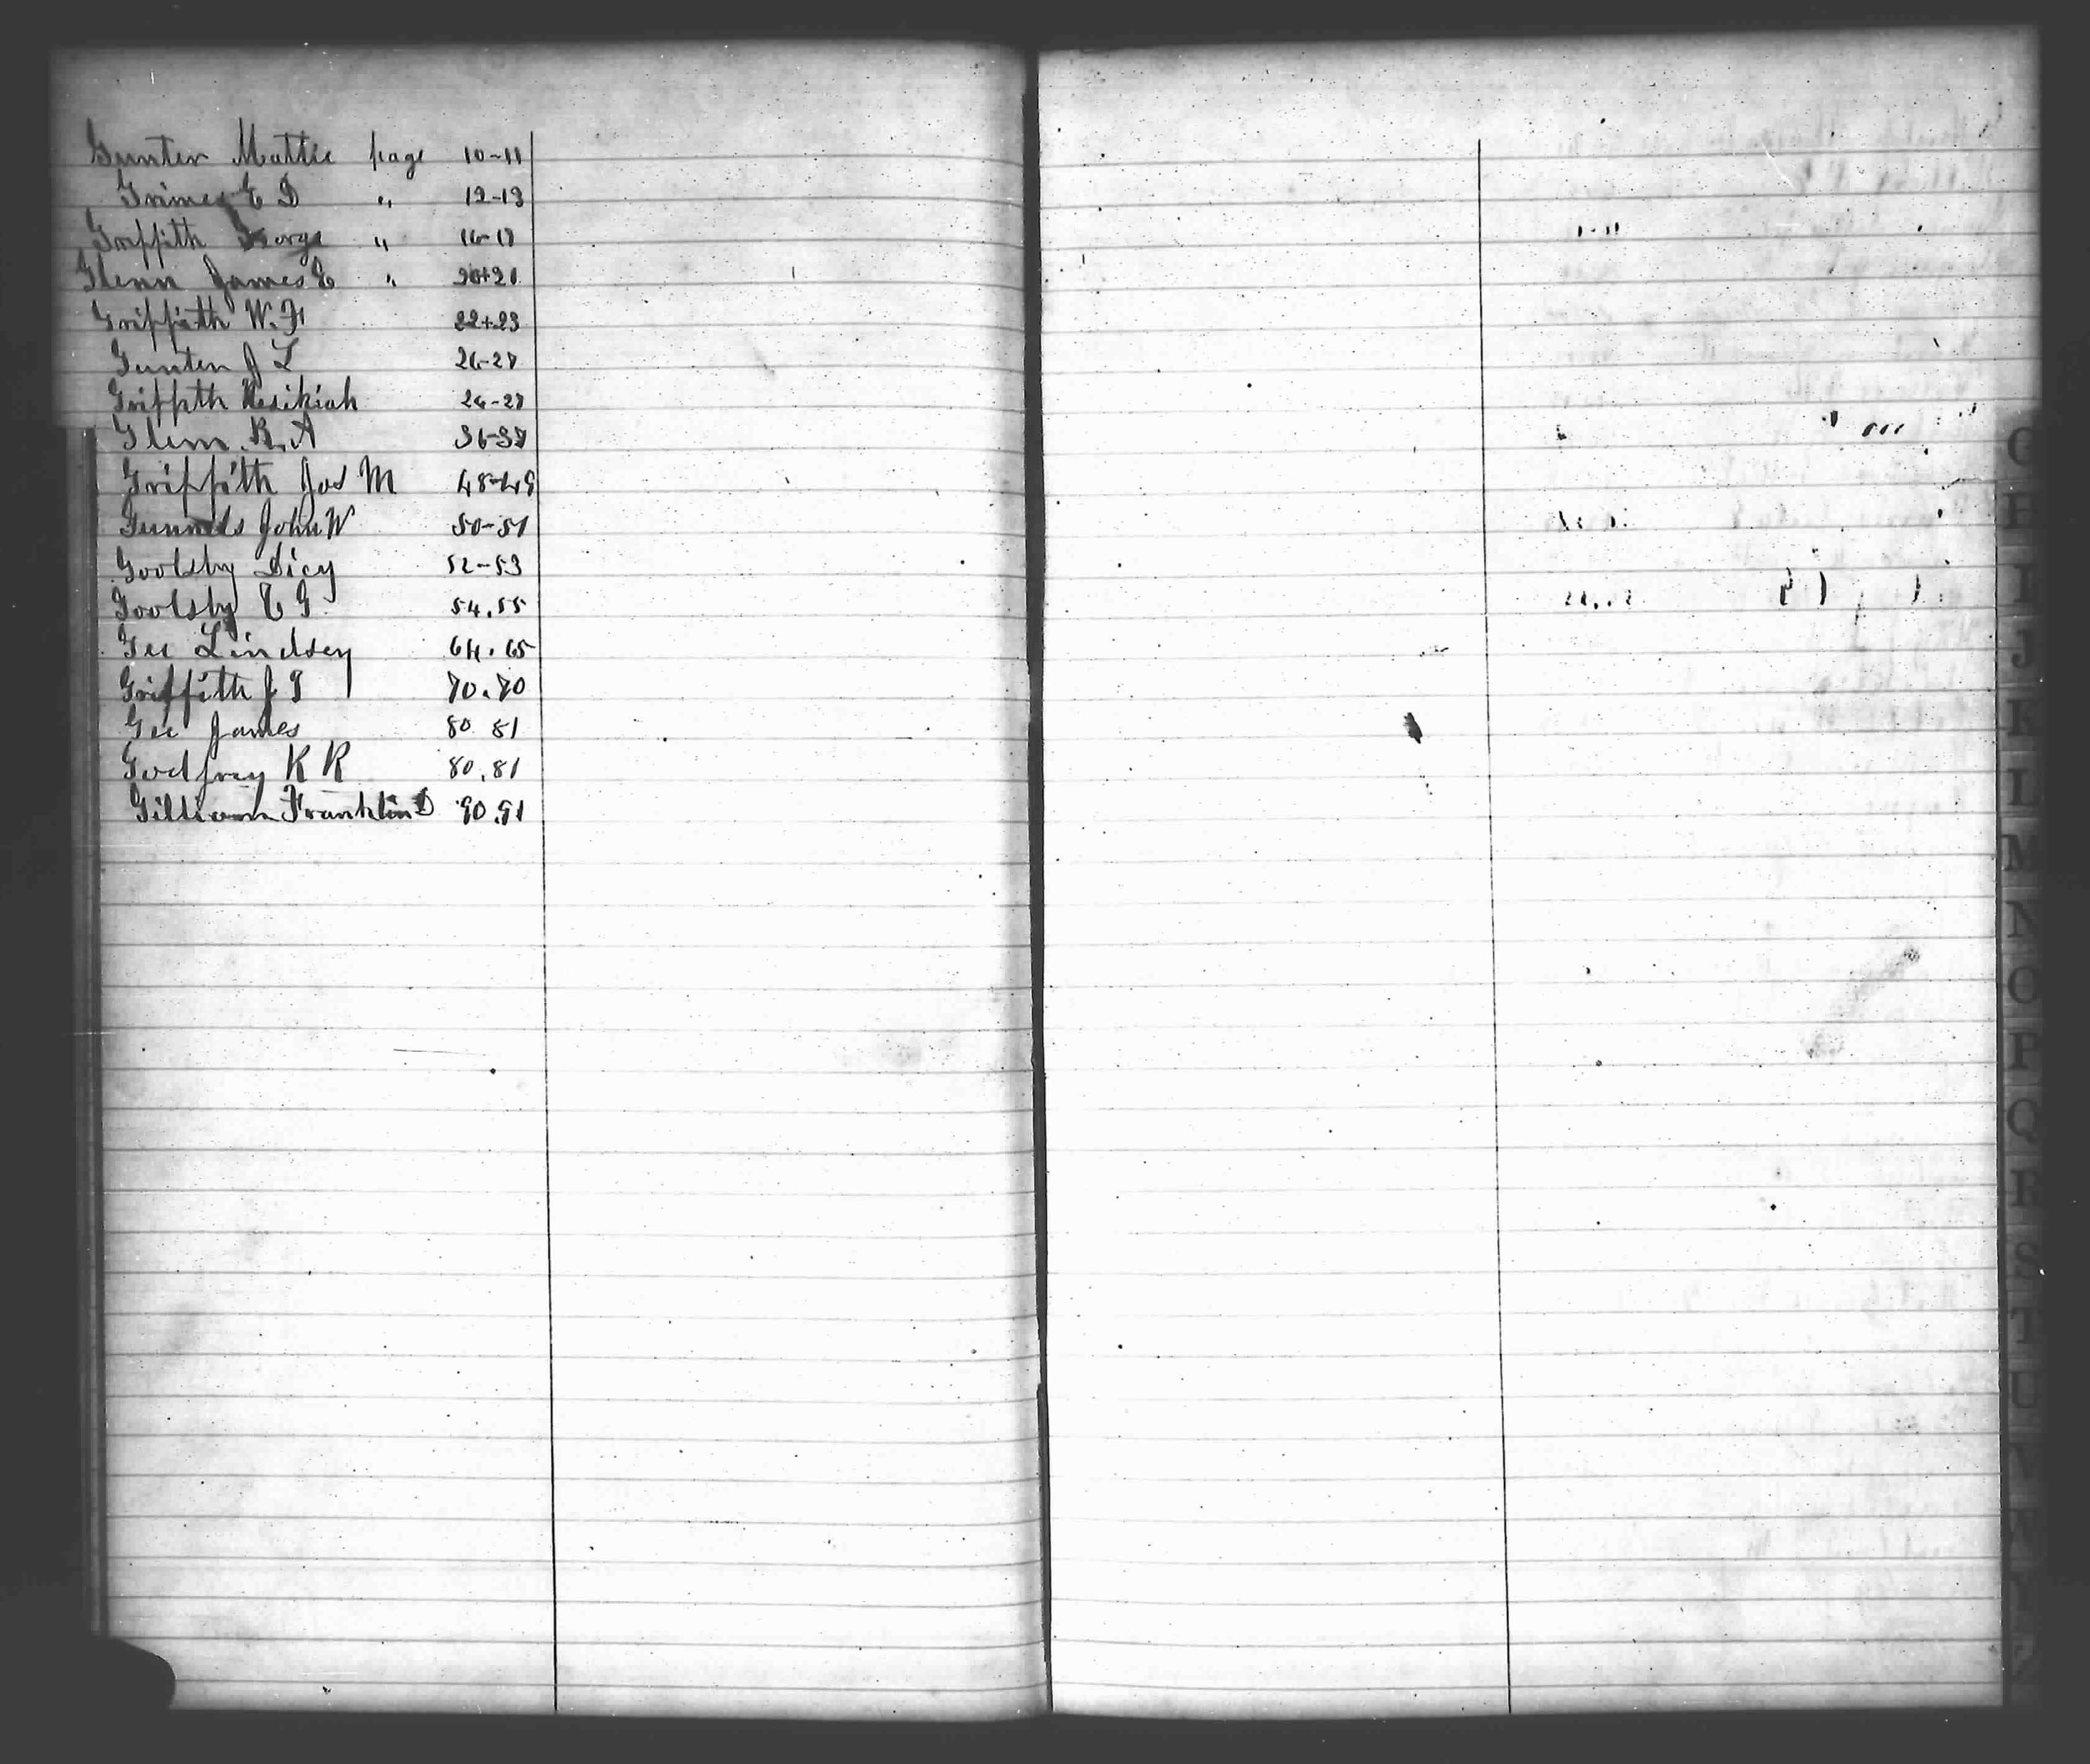 Gunter Mattie page 10-11
Grimes E D " 12-13
Griffith George " 16-17
Glenn James E " 20+21
Griffith W. F 22+23
Gunter J L 26-27
Griffith Hesikiah 26-27
Glenn R. A 36-37
Griffith Jos M 48-49
Gunnels John W 50-51
Goolsby Dicy 52-53
Goolsby T G 54.55
Gee Lindsey 64.65
Griffith J J 70.70
Gee James 80 81
Godfrey K R 80.81
Gilliam Franklin D 90.91
G
H
I
J
K
L
M
N
O
P
Q
R
S
T
U